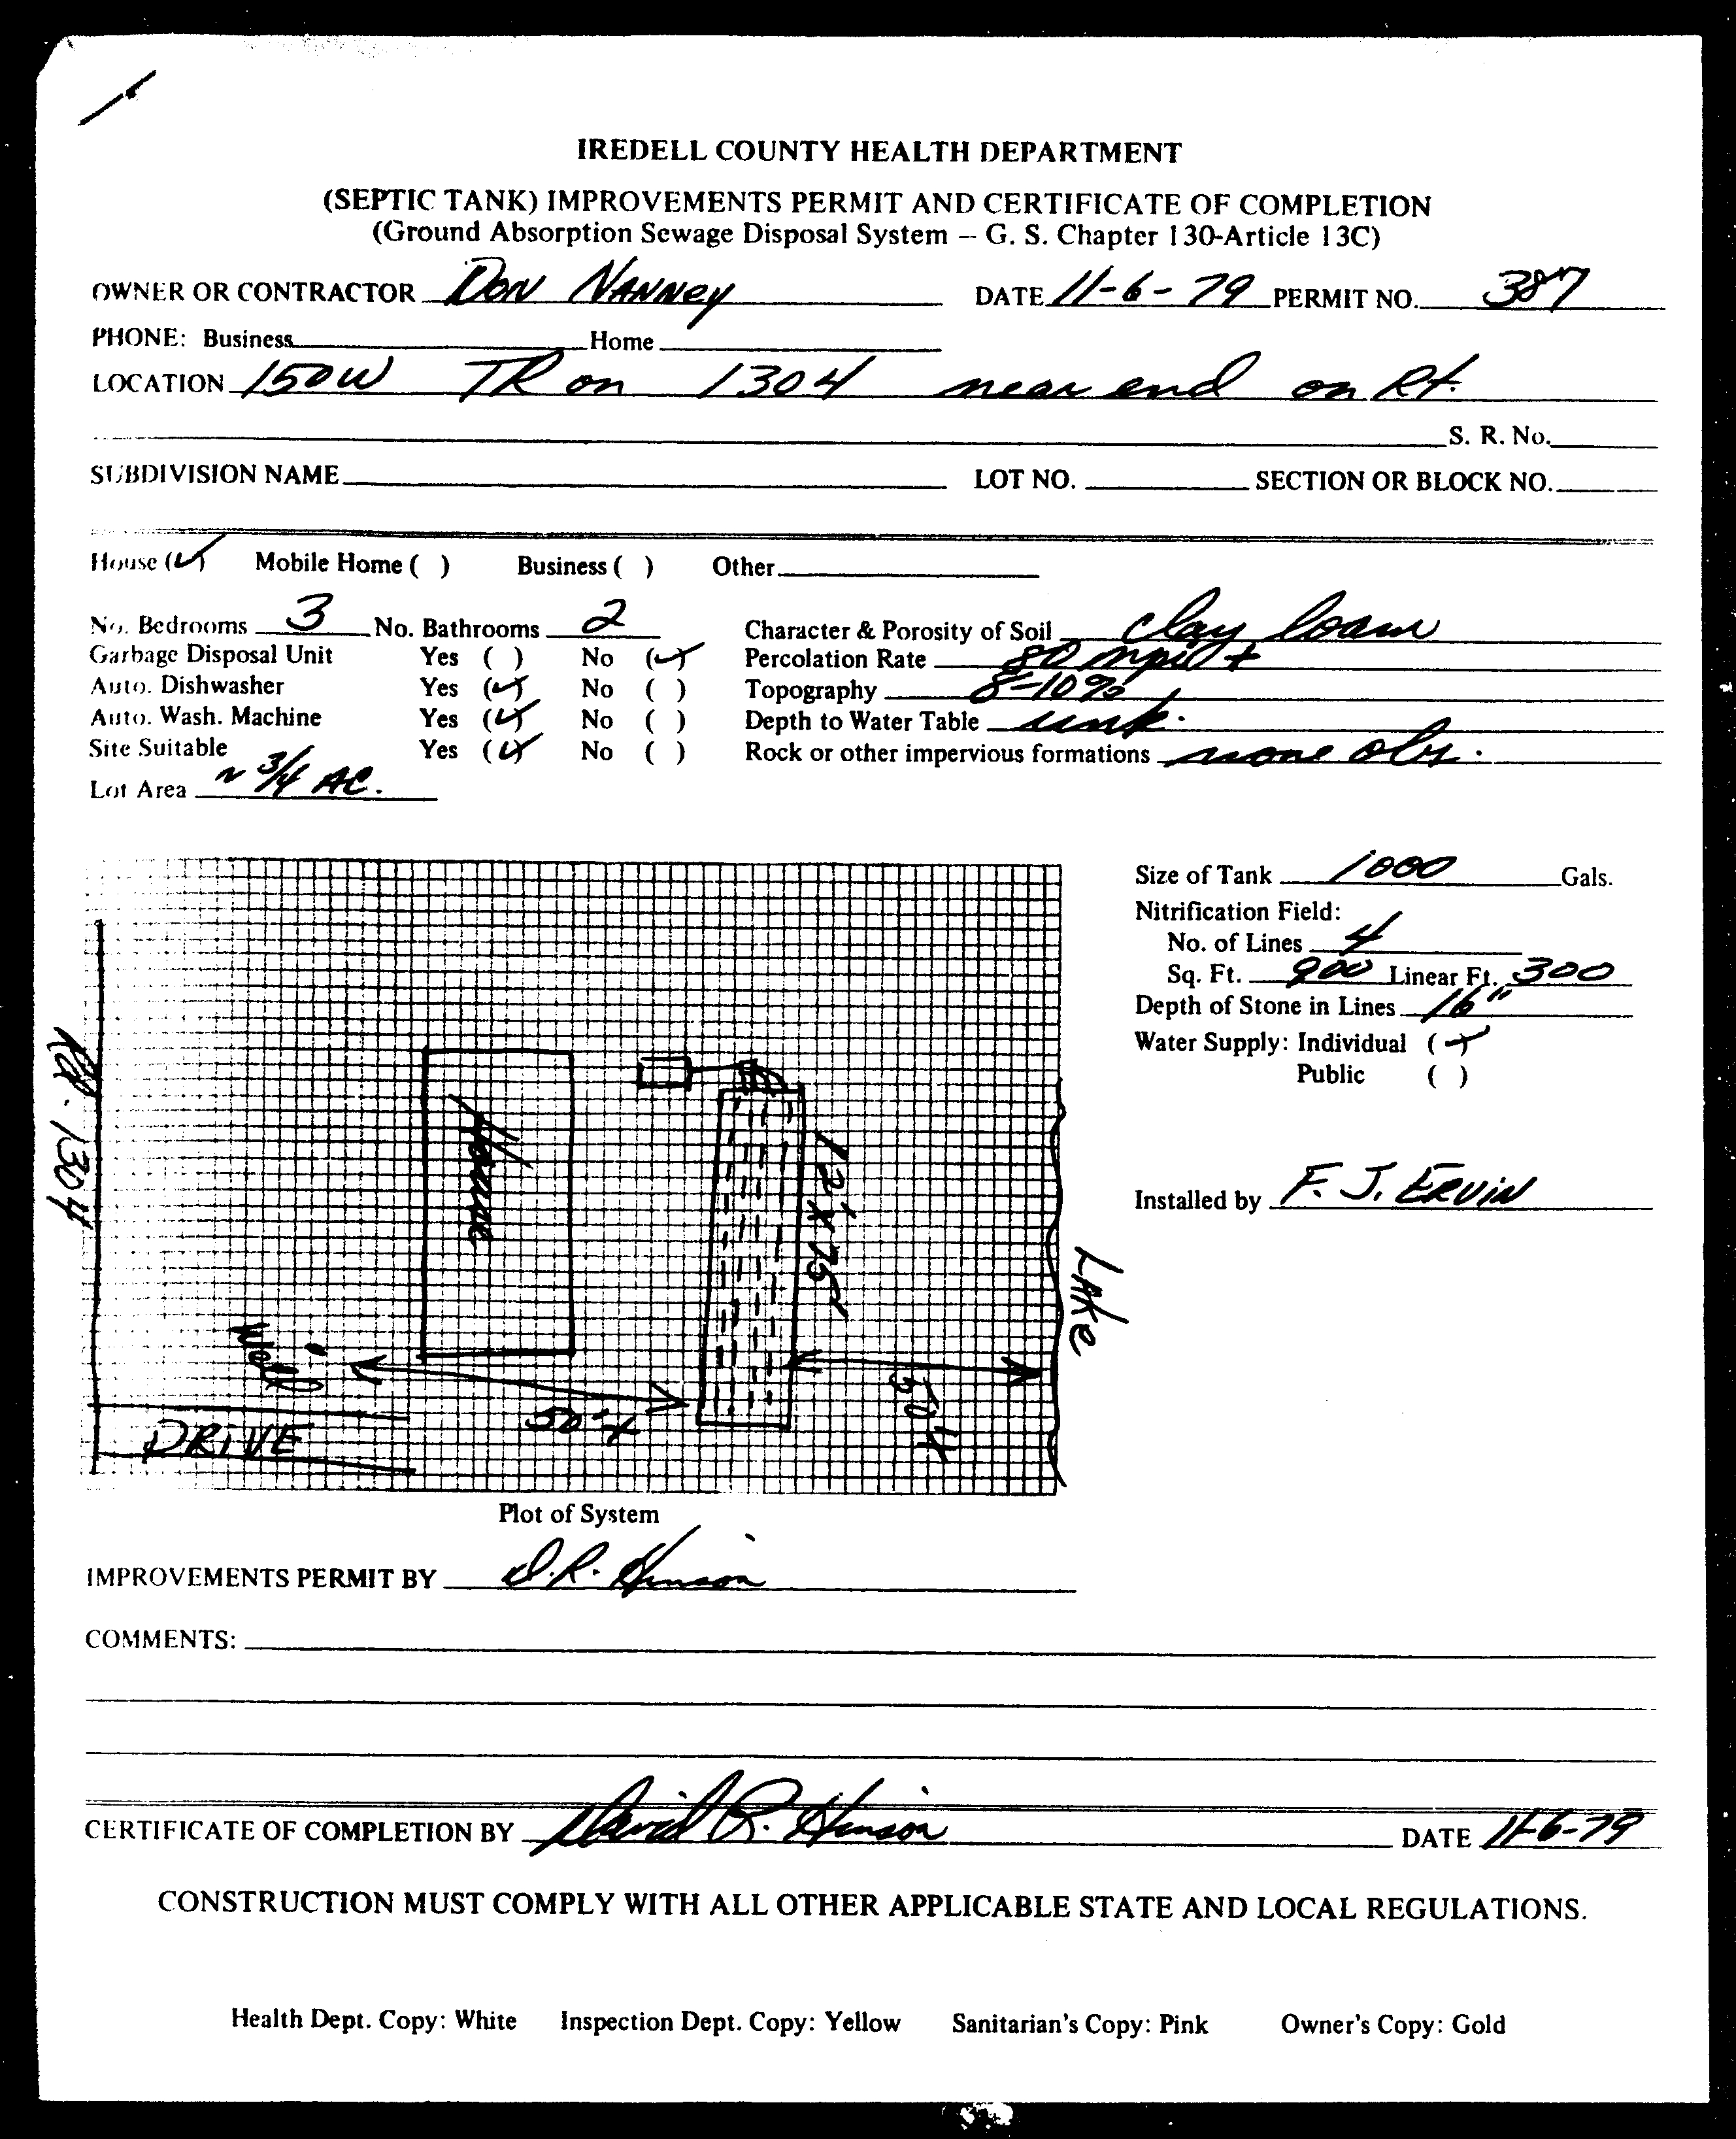 IREDELL COUNTY HEALTH DEPARTMENT
(SEPTIC TANK) IMPROVEMENTS PERMIT AND CERTIFICATE OF COMPLETION
(Ground Absorption Sewage Disposal System – G. S. Chapter 130-Article 13C)
OWNER OR CONTRACTOR Don Nanney DATE 11-6-79 PERMIT NO. 387
PHONE: Business Home
LOCATION 150W TR on 1304 near end on Rt.
S. R. No.
SUBDIVISION NAME LOT NO. SECTION OR BLOCK NO.
House (✓) Mobile Home ( ) Business ( ) Other
No. Bedrooms 3 No. Bathrooms 2 Character & Porosity of Soil clay loam
Garbage Disposal Unit Yes ( ) No (✓) Percolation Rate 80 mpi +
Auto. Dishwasher Yes (✓) No ( ) Topography 8-10%
Auto. Wash. Machine Yes (✓) No ( ) Depth to Water Table unk.
Site Suitable Yes (✓) No ( ) Rock or other impervious formations none obs.
Lot Area ~ 3/4 AC.
Size of Tank 1000 Gals.
Nitrification Field:
No. of Lines 4
Sq. Ft. 900 Linear Ft. 300
Depth of Stone in Lines 16"
Water Supply: Individual (✓)
Public ( )
Installed by F. J. ERVIN
Rd. 1304
House
12' X 75'
Lake
Well
50'+
50'+
DRIVE
Plot of System
IMPROVEMENTS PERMIT BY D.R. Hinson
COMMENTS:
CERTIFICATE OF COMPLETION BY David R. Hinson DATE 11-6-79
CONSTRUCTION MUST COMPLY WITH ALL OTHER APPLICABLE STATE AND LOCAL REGULATIONS.
Health Dept. Copy: White Inspection Dept. Copy: Yellow Sanitarian's Copy: Pink Owner's Copy: Gold